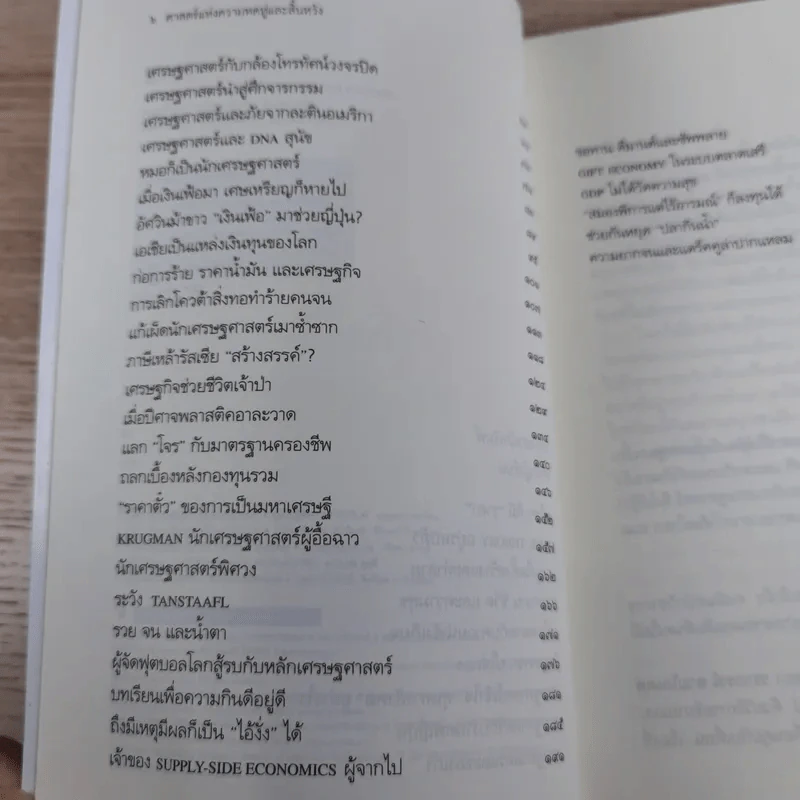 ๖ ศาสตร์แห่งความหดหู่และสิ้นหวัง
เศรษฐศาสตร์กับกล้องโทรทัศน์วงจรปิด
เศรษฐศาสตร์นำสู่ศึกจารกรรม
เศรษฐศาสตร์และภัยจากละตินอเมริกา
เศรษฐศาสตร์และ DNA สุนัข
หมอก็เป็นนักเศรษฐศาสตร์
เมื่อเงินเฟ้อมา เศษเหรียญก็หายไป
อัศวินม้าขาว "เงินเฟ้อ" มาช่วยญี่ปุ่น?
เอเชียเป็นแหล่งเงินทุนของโลก
ก่อการร้าย ราคาน้ำมัน และเศรษฐกิจ ๑๐๑
การเลิกโควต้าสิ่งทอทำร้ายคนจน ๑๐๗
แก้เผ็ดนักเศรษฐศาสตร์เมาซ้ำซาก ๑๑๓
ภาษีเหล้ารัสเซีย "สร้างสรรค์"? ๑๑๘
เศรษฐกิจช่วยชีวิตเจ้าป่า ๑๒๔
เมื่อปีศาจพลาสติคอาละวาด ๑๒๙
แลก "โจร" กับมาตรฐานครองชีพ ๑๓๔
ถลกเบื้องหลังกองทุนรวม ๑๔๐
"ราคาตั๋ว" ของการเป็นมหาเศรษฐี ๑๔๖
KRUGMAN นักเศรษฐศาสตร์ผู้อื้อฉาว ๑๕๒
นักเศรษฐศาสตร์พิศวง ๑๕๗
ระวัง TANSTAAFL ๑๖๒
รวย จน และน้ำตา ๑๖๖
ผู้จัดฟุตบอลโลกสู้รบกับหลักเศรษฐศาสตร์ ๑๗๑
บทเรียนเพื่อความกินดีอยู่ดี ๑๗๖
ถึงมีเหตุมีผลก็เป็น "ไอ้งั่ง" ได้ ๑๘๑
เจ้าของ SUPPLY-SIDE ECONOMICS ผู้จากไป ๑๘๕
๑๙๑
ขอทาน ดีมานด์และซัพพลาย
GIFT ECONOMY ในระบบตลาดเสรี
GDP ไม่ได้วัดความสุข
"สมองพิการแต่ไร้อารมณ์" ก็ลงทุนได้
ช่วยกันหยุด "ปลากินน้ำ"
ความยากจนและแคร็คคูล่าปากแหลม